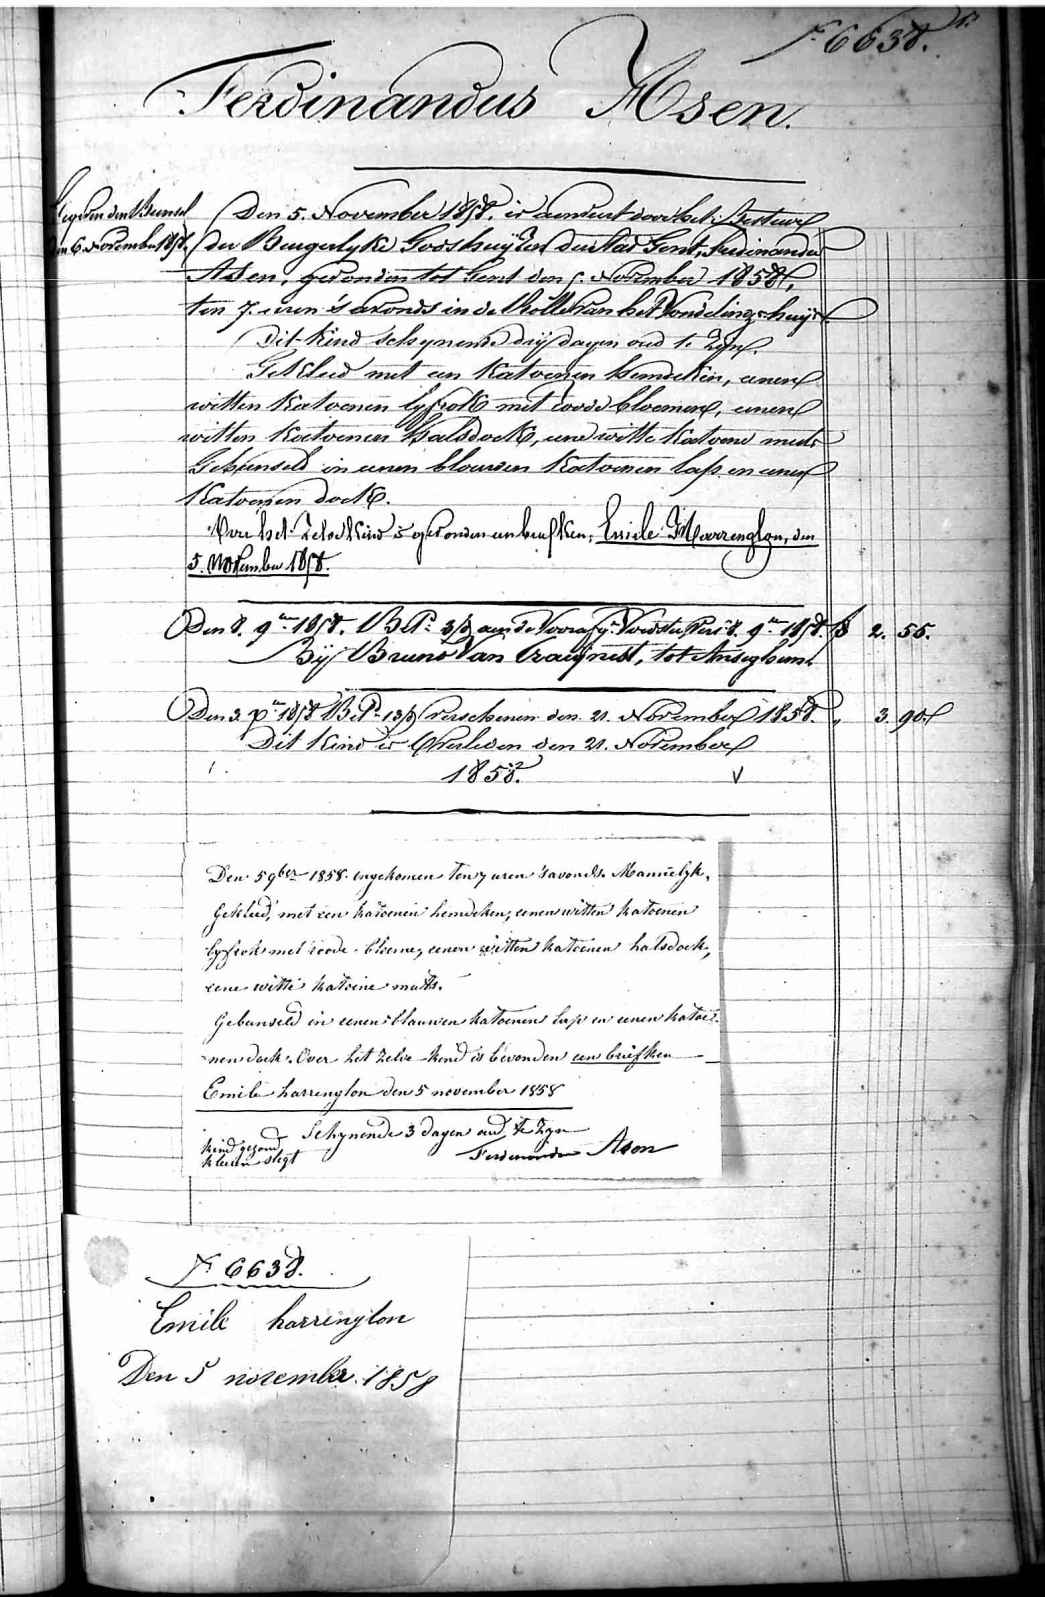 N° 6638.
Ferdinandus Asen.
den 6. November 1858.
Den 5. November 1858. is aenveert door het Bestuer
der Burgerlyke Godshuyzen der Stad Gent, Ferdinandus
Asen, gevonden tot Gent den 5. November 1858,
ten 7. uren 's avonds in de Rolle van het Vondelingshuys.
Dit kind schynende dry dagen oud te zyn.
Gekleed met een katoenen hemdeken, eenen
witten katoenen lyfrok met roode bloemen, eenen
witten katoenen halsdoek, eene witte katoene muts
Gebunseld in eenen blauwen katoenen lap en eenen
katoenen doek.
Over het zelve kind is gevonden een briefken, Emile Harrington, den
5. November 1858.
Den 8. 9ber 1858. 9ber 1858. 2. 55.
Bij Bruno Van Craeynest, tot Anseghem.
Den 3. Xber 1858 verschenen den 21. November 1858. " 3. 90
Dit kind is Overleden den 21. November
1858.
Den 5 9ber 1858 ingekomen ten 7 uren 's avonds. Mannelyk.
Gekleed, met een katoenen hemdeken, eenen witten katoenen
lyfrok met roode bloeme, eenen witten katoenen halsdoek,
eene witte katoene muts.
Gebunseld in eenen blauwen katoenen lap en eenen katoe-
nen doek. Over het zelve kind is bevonden een briefken
Emile harrington den 5 november 1858
Schynende 3 dagen oud te zyn
kind gezond
kleeren slegt
Ferdinandus Asen
N° 6638.
Emile harrington
Den 5 november 1858